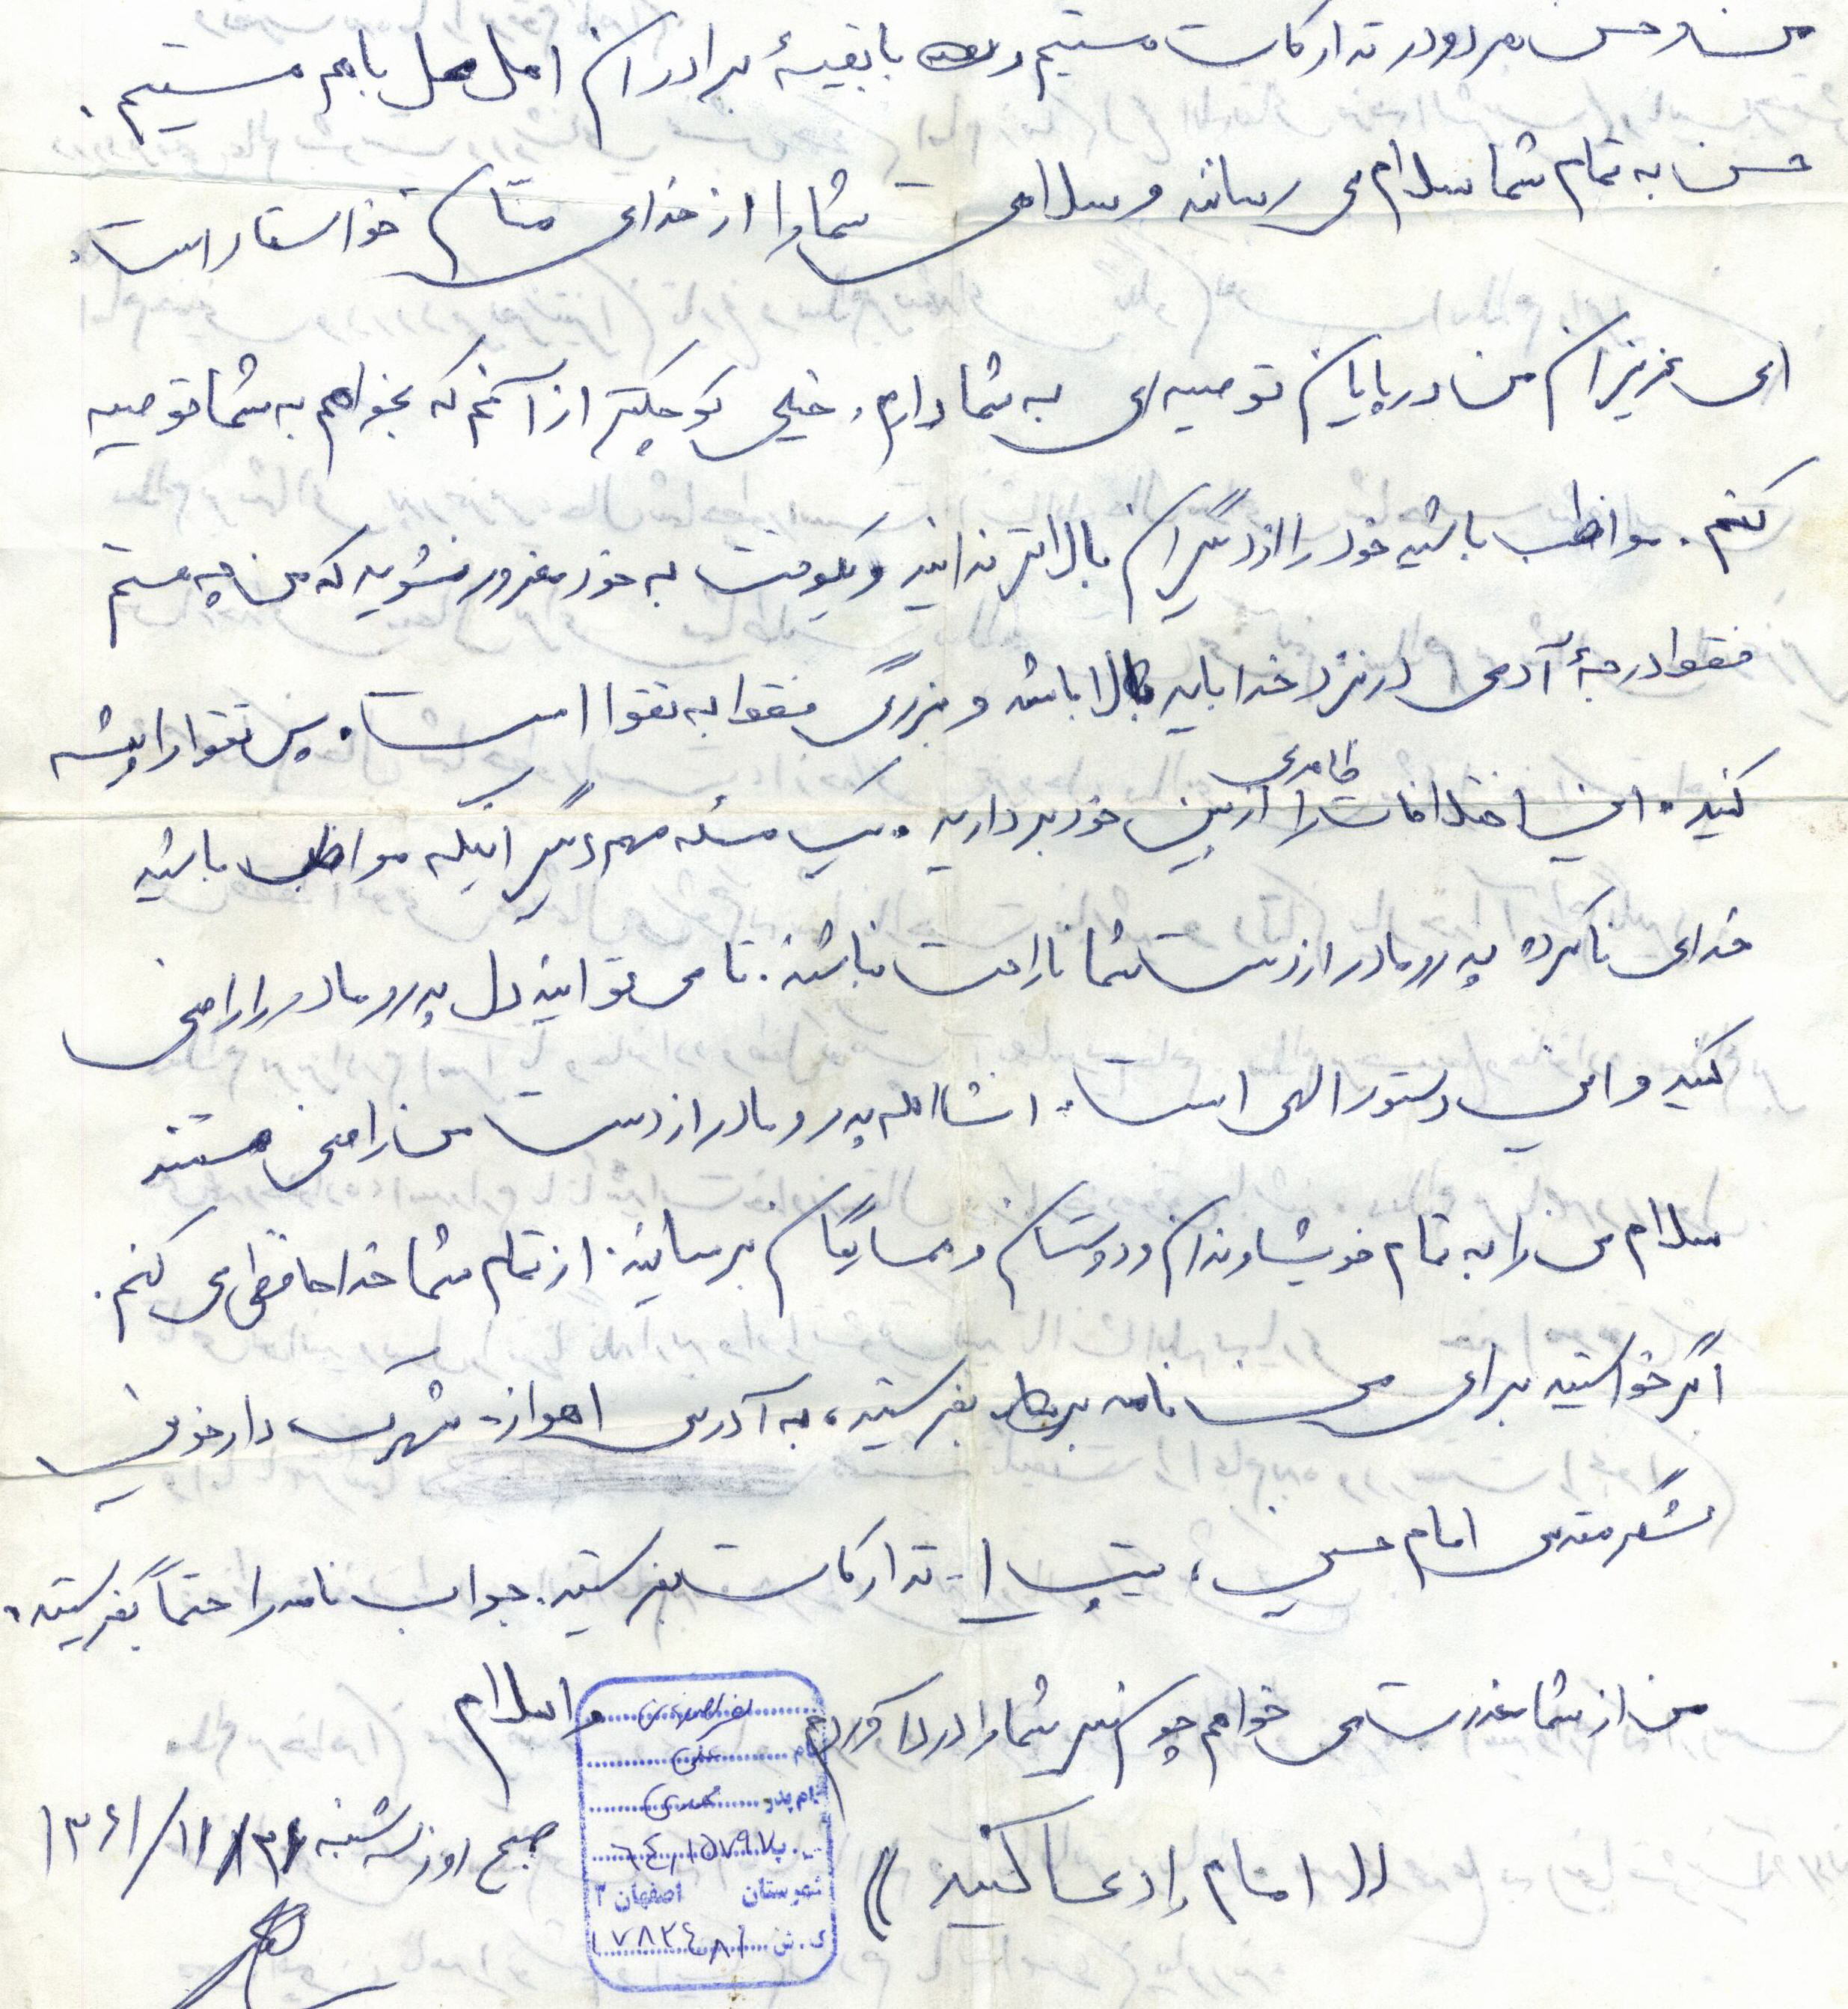 من و حسن هر دو در تدارکات هستیم و با بقیهٔ برادران اهل محل باهم هستیم.
حسن به تمام شما سلام می رساند و سلامتی شما را از خدای منان خواستار است.
ای عزیزان من در پایان توصیه ای به شما دارم، خیلی کوچکتر از آنم که بخواهم به شما توصیه
کنم. مواظب باشید خود را از دیگران بالاتر ندانید و یکوقت به خود مغرور نشوید که من چه هستم
فقط درجهٔ آدمی در نزد خدا باید بالا باشد و بزرگی فقط به تقوا است. پس تقوا را پیشه
کنید. این اختلافات ظاهری را از بین خود بردارید. یک مسئله مهم دیگر اینکه مواظب باشید
خدای ناکرده پدر و مادر از دست شما ناراحت نباشند. تا می توانید دل پدر و مادر را راضی
کنید و این دستور الهی است. انشاالله پدر و مادر از دست من راضی هستند
سلام من را به تمام خویشاوندان و دوستان و همسایگان برسانید. از تمام شما خداحافظی می کنم.
اگر خواستید برای من نامه بفرستید، به آدرس اهواز - شهرک دارخوین
لشگر مقدس امام حسین، تیپ ۱ - تدارکات بفرستید. جواب نامه را حتماً بفرستید.
من از شما معذرت می خواهم چون سر شما را درد آوردم والسلام
نام علی
نام پدر
شهرستان اصفهان ۲
« امام را دعا کنید »
صبح روز سه شنبه ۱۳۶۱/۱۱/